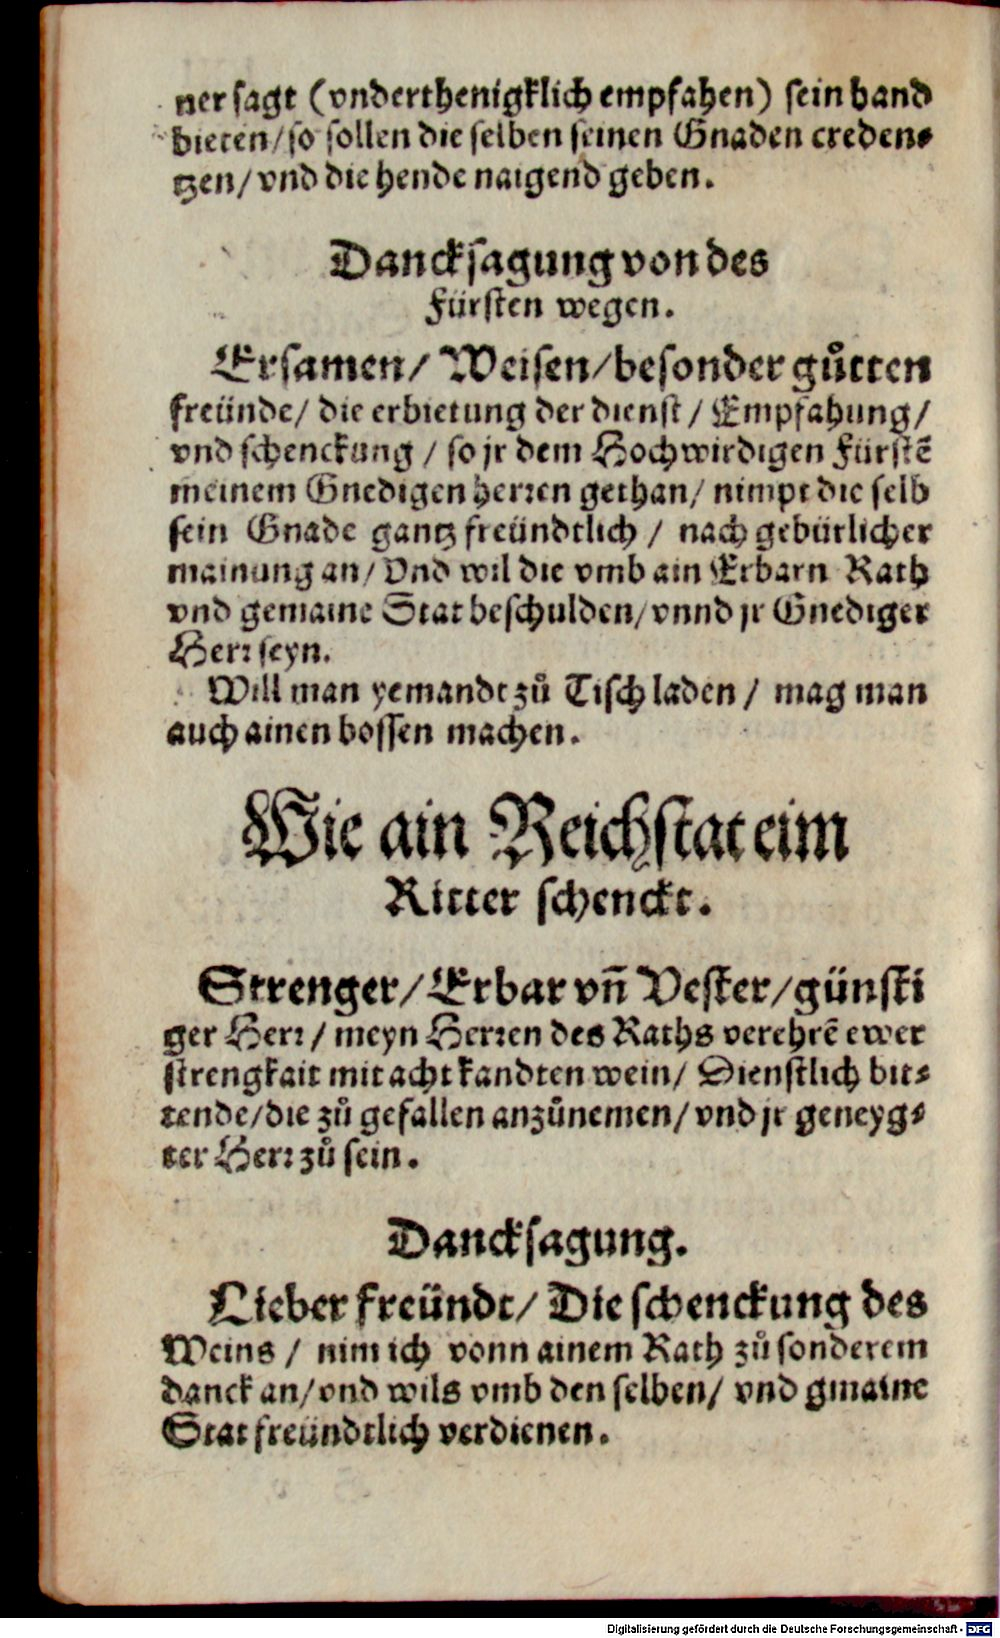 ner sagt (vnderthenigklich empfahen) sein hand
bieten/ so sollen die selben seinen Gnaden creden⸗
tzen/ vnd die hende naigend geben.
Dancksagung von des
Fürsten wegen.
Ersamen/ Weisen/ besonder gůtten
freünde/ die erbietung der dienst/ Empfahung/
vnd schenckung / so jr dem Hochwirdigen Fürstẽ
meinem Gnedigen herꝛen gethan/ nimpt die selb
sein Gnade gantz freündtlich / nach gebürlicher
mainung an/ Vnd wil die vmb ain Erbarn Rath
vnd gemaine Stat beschulden/ vnnd jr Gnediger
Herꝛ seyn.
Will man yemandt zů Tisch laden / mag man
auch ainen bossen machen.
Wie ain Reichstat eim
Ritter schenckt.
Strenger/ Erbar vñ Vester/ günsti
ger Herꝛ / meyn Herꝛen des Raths verehrẽ ewer
strengkait mit acht kandten wein/ Dienstlich bit⸗
tende/ die zů gefallen anzůnemen/ vnd jr geneyg⸗
ter Herꝛ zů sein.
Dancksagung.
Lieber freündt/ Die schenckung des
Weins / nim ich vonn ainem Rath zů sonderem
danck an/ vnd wils vmb den selben/ vnd gmaine
Stat freündtlich verdienen.
Digitalisierung gefördert durch die Deutsche Forschungsgemeinschaft - DFG